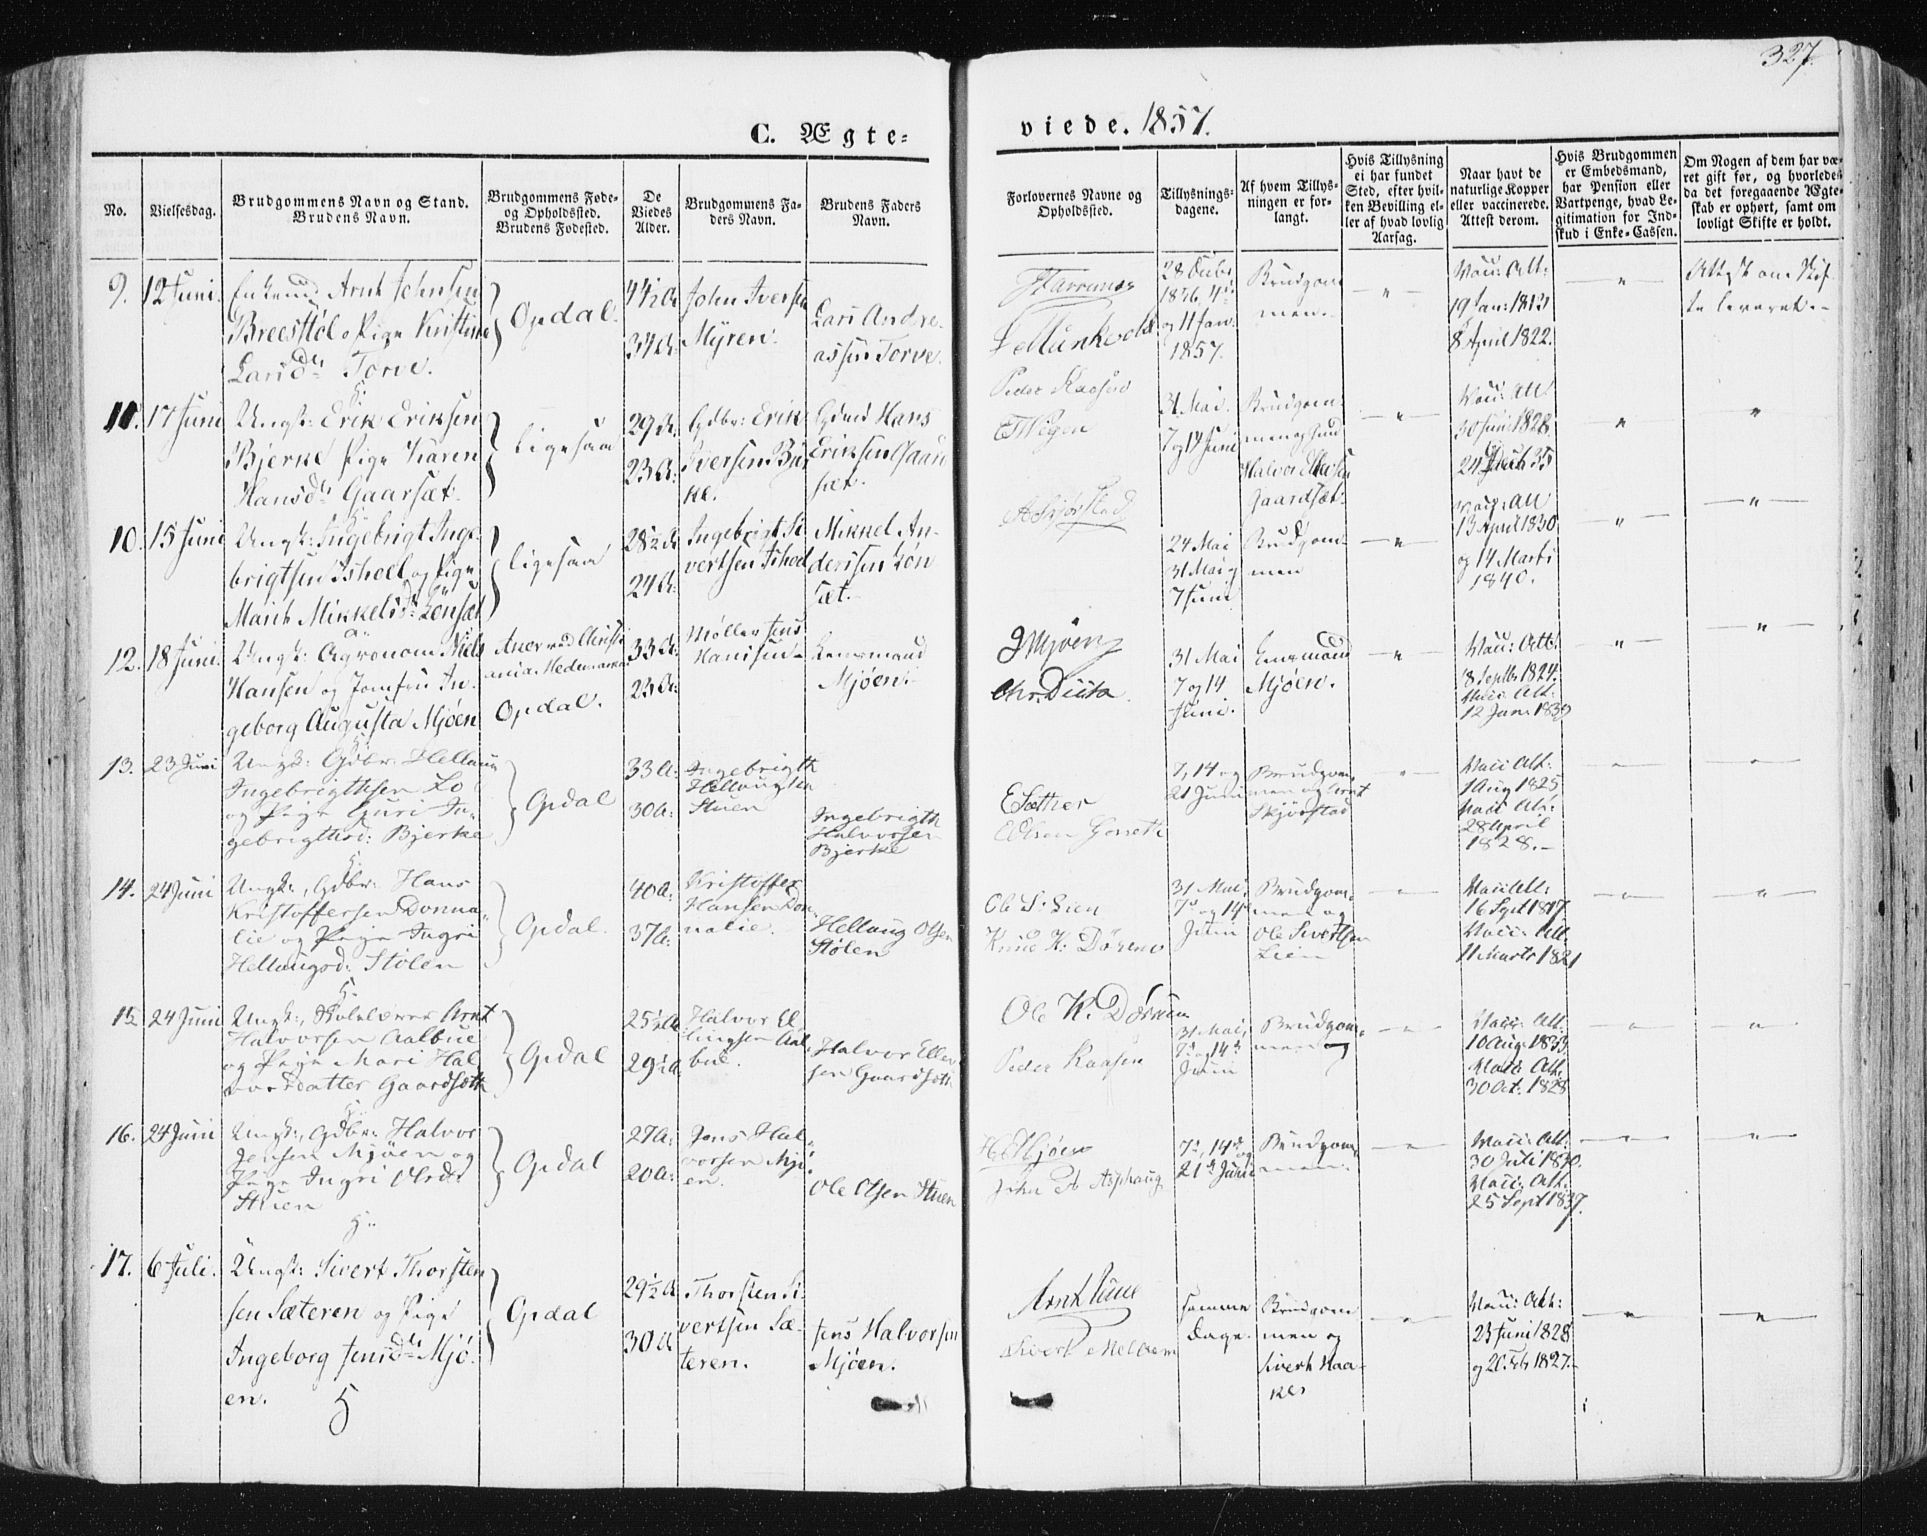 327.
C. Ægte=
viede. 1857.
No.
Vielsesdag.
Brudgommens Navn og Stand.
Brudens Navn.
Brudgommens Føde-
og Opholdssted.
Brudens Fødested.
De
Viedes
Alder.
Brudgommens Fa-
ders Navn.
Brudens Faders
Navn.
Forlovernes Navne og
Opholdssted.
Tillysnings-
dagene.
Af hvem Tillys-
ningen er for-
langt.
Hvis Tillysning
ei har fundet
Sted, efter hvil-
ken Bevilling el-
ler af hvad lovlig
Aarsag.
Naar havt de
naturlige Kopper
eller vaccinerede.
Attest derom.
Hvis Brudgommen
er Embedsmand,
har Pension eller
Vartpenge, hvad Le-
gitimation for Ind-
skud i Enke-Cassen.
Om Nogen af dem har væ-
ret gift før, og hvorledes
da det foregaaende Ægte-
skab er ophørt, samt om
lovligt Skifte er holdt.
9. 12 Juni.
Arnt Johnsen
Breesstøl og Pige Kristine
Larsdr Torve.
Opdal.
44½ A
34 A:
John Iversen
Myren.
Lars Andre-
assen Torve.
1856, 4de
og 11 Jan.
1857.
Brudgom
men.
Vacc: Att:
19 Jan: 1813
8 April 1822.
Attest om Skif
te leveret.
11. 17 Juni
Ungk: Erik Eriksen
Bjerke Pige Karen
Hansdr Gaarsæt.
ligesaa
29 A:
23 A:
Gdbr: Erik
Iversen Bjer
ke.
Hans
Eriksen Gaard
sæt.
Peder Kaasen
31 Mai.
7 og 14 Juni
Brudgom
Halvor
Gaardsæt.
Vacc: Att:
30 Juni 1828.
10. 15 Juni
Ungk: Ingebrigt Inge-
brigtsen Ishoel og Pige
Marit Mikkelsdr Lønsæt
ligesaa
28½ A
24 A:
Ingebrigt Si
vertsen Ishoel
Mikkel An-
derssen Løn
sæt.
24 Mai
31 Mai og
7 Juni
Brudgom-
men
Vacc: Att
13 April 1830.
og 14 Marts
1840.
12. 18 Juni.
Ungk: Agronom Niels
Hansen og Jomfru In-
geborg Augusta Mjøen
Opdal.
33 A:
23 A:
Møller Jens
Hansen
Lensmand
Mjøen.
31 Mai
7 og 14
Juni.
Lensmand
Mjøen.
Vacc: Att:
8 Septb: 1824.
Vacc: Att:
12 Jan: 1839
13. 23 Juni
Ungk: Gdbr. Hellaug
Ingebrigthsen Lo
og Pige Guri In-
gebrigthsd: Bjerke
Opdal
33 A:
30 A:
Ingebrigth
Hellaugsen
Stuen
Ingebrigth
Halvorsen
Bjerke
E Sæther
7, 14 og
21 Juni
Brudgom-
men og Arnt
Skjørstad
Vacc Att:
1 Aug 1825
Vacc Att:
28 April
1828.
14. 24 Juni
Ungk:, Gdbr: Hans
Kristoffersen Donna-
lie og Pige Ingri
Hellaugsd: Stølen
Opdal.
40 A:
37 A:
Kristoffer
Hansen Don-
nalie.
Hellaug Olsen
Stølen
Ole S: Lien
31 Mai,
7de og 14de
Juni
Brudgom-
men og
Ole Sivertsen
Lien
Vacc Att:
16 Sept 1817
Vacc: Att.
11 Marts 1821
15. 24 Juni
Ungk:, Skolelærer Arnt
Halvorsen Aalbue
og Pige Mari Hal
vorsdatter Gaardsæth
Opdal
25½ A
29½ A.
Halvor El
lingsen Aal-
bue.
Halvor Ellev
sen Gaardsæth
Peder Kaasen
31 Mai,
7de og 14de
Juni
Brudgom-
men og
Vacc: Att.
10 Aug: 1833.
Vacc: Att.
30 Oct: 1828
16. 24 Juni
Ungk:, Gdbr: Halvor
Jensen Mjøen og
Pige Ingri Olsd:
Stuen
Opdal
27 A:
20 A:
Jens Hal-
vorsen Mjø-
en.
Ole Olsen Stuen
H. Mjøen
7de, 14de og
21de Juni
Brudgom-
men.
Vacc: Att:
30 Juli 1830.
Vacc: Att.
25 Sept 1837.
17. 6 Juli.
Ungk: Sivert Thorsten
sen Sæteren og Pige
Ingeborg Jensdr Mjø-
en.
Opdal
29½ A
30 A
Thorsten Si-
vertsen Sæ-
teren.
Jens Halvorsen
Mjøen.
samme
Dage.
Brudgom
men og
Sivert Haa-
ker
Vacc: Att:
23 Juni 1828
og 20. Feb 1827.